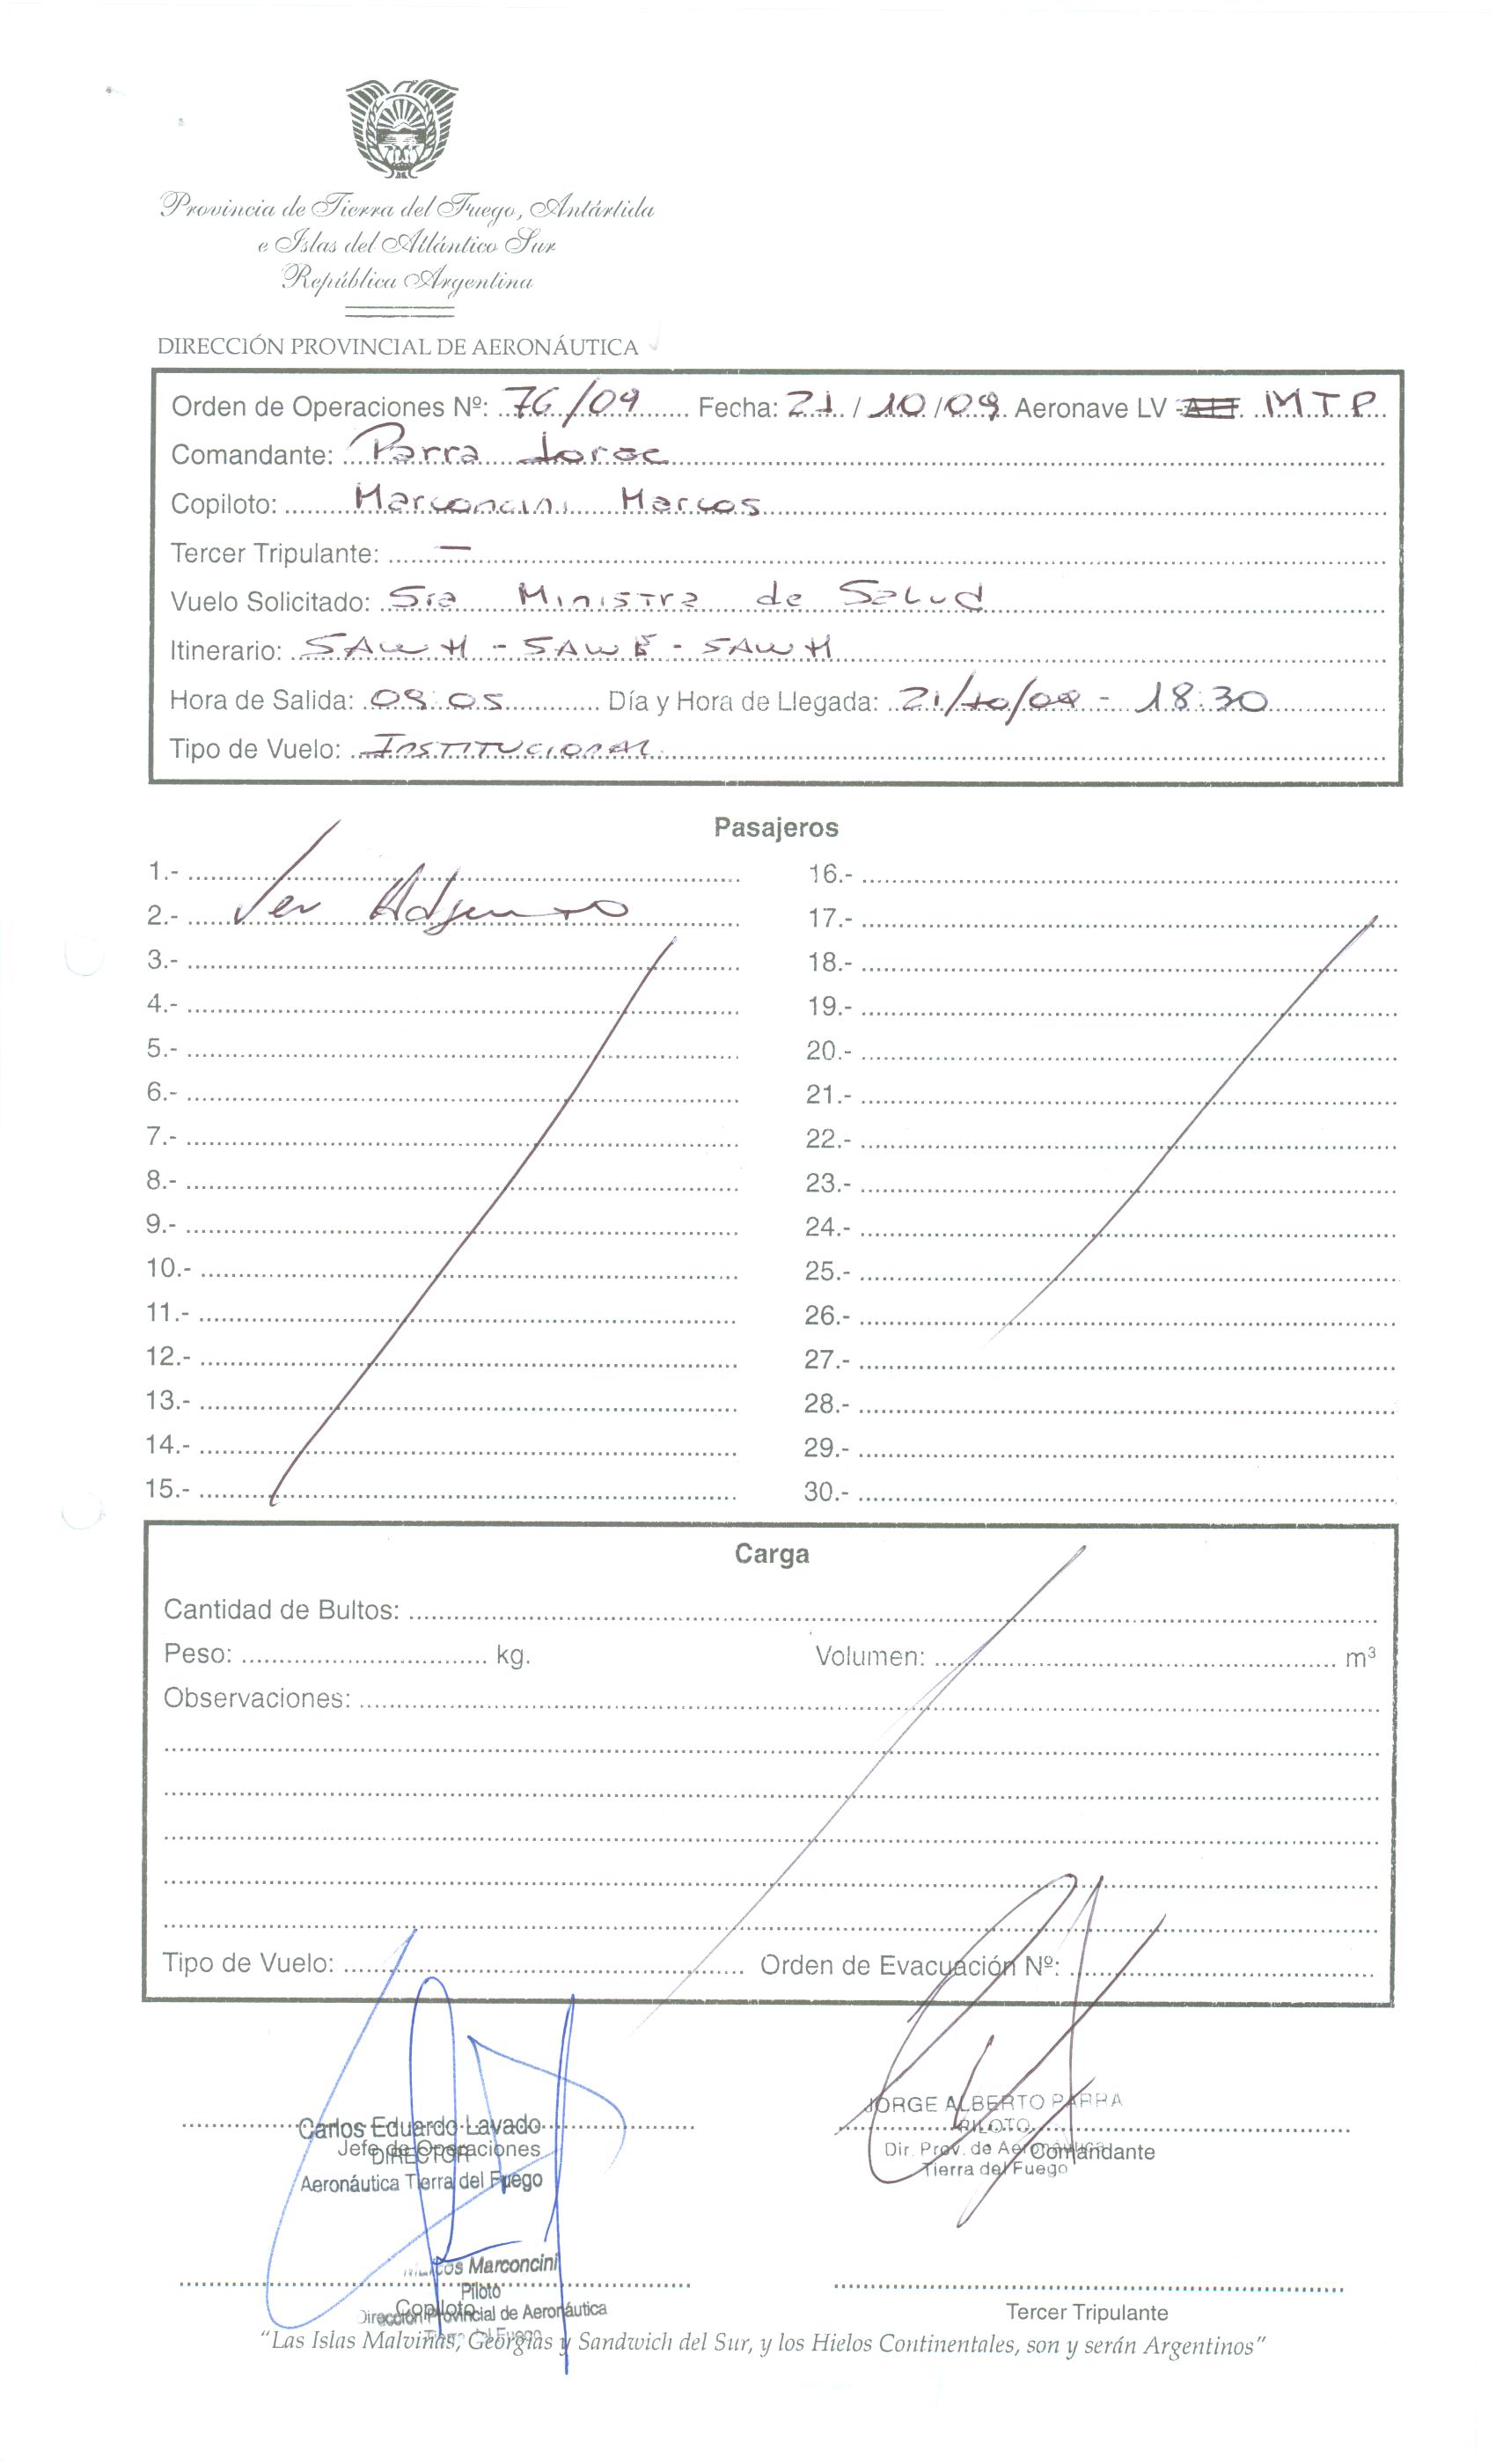 Provincia de Tierra del Fuego, Antártida
e Islas del Atlántico Sur
República Argentina
DIRECCIÓN PROVINCIAL DE AERONÁUTICA
Orden de Operaciones Nº: 76/09 Fecha: 21 / 10 /09 Aeronave LV - MTP
Comandante: Parra Jorge
Copiloto: Marconcini Marcos
Tercer Tripulante: —
Vuelo Solicitado: Sra Ministra de Salud
Itinerario: SAWH - SAWE - SAWH
Hora de Salida: 09:05 Día y Hora de Llegada: 21/10/09 - 18:30
Tipo de Vuelo: INSTITUCIONAL
Pasajeros
1.- 16.-
2.- Ver Adjunto 17.-
3.- 18.-
4.- 19.-
5.- 20.-
6.- 21.-
7.- 22.-
8.- 23.-
9.- 24.-
10.- 25.-
11.- 26.-
12.- 27.-
13.- 28.-
14.- 29.-
15.- 30.-
Carga
Cantidad de Bultos:
Peso: kg. Volumen: m³
Observaciones:
Tipo de Vuelo: Orden de Evacuación Nº:
Carlos Eduardo Lavado
Jefe de Operaciones
DIRECTOR
Aeronáutica Tierra del Fuego
JORGE ALBERTO PARRA
PILOTO
Dir. Prov. de Aeronáutica
Comandante
Tierra del Fuego
Marcos Marconcini
Piloto
Copiloto
Dirección Provincial de Aeronáutica
Tierra del Fuego
Tercer Tripulante
“Las Islas Malvinas, Georgias y Sandwich del Sur, y los Hielos Continentales, son y serán Argentinos”